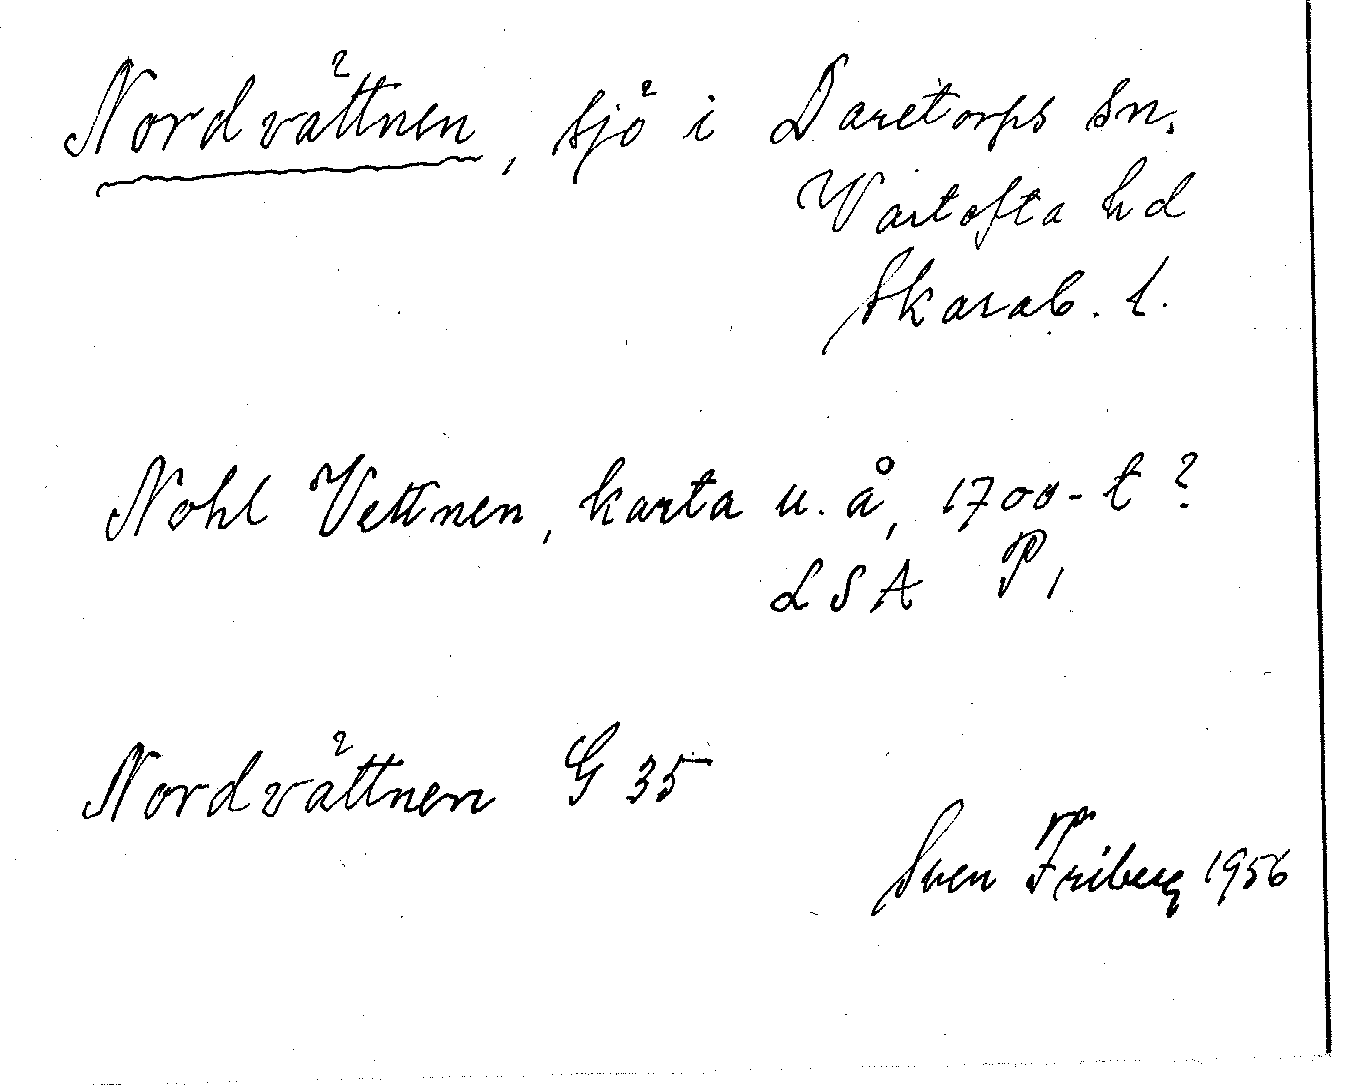 Nordvättnen, sjö i Daretorps sn.
Vartofta hd
Skarab. l.
Nohl Vettnen, karta u. å, 1700-t?
LSA P1
Nordvättnen G 35
Sven Friberg 1956